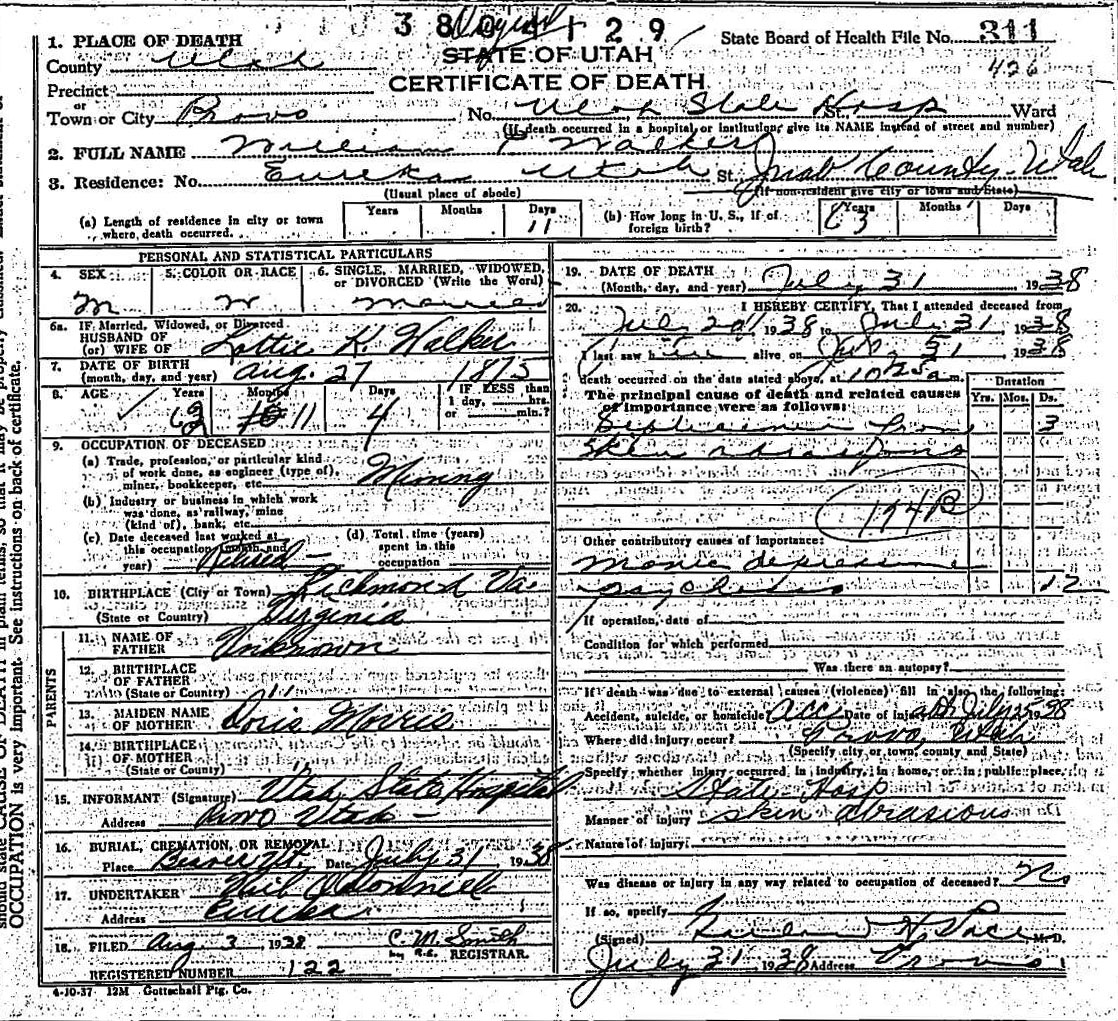 38 04129
State Board of Health File No. 311
426
STATE OF UTAH
CERTIFICATE OF DEATH
1. PLACE OF DEATH
County Utah
Precinct
or
Town or City Provo No. Utah State Hosp St. Ward
(If death occurred in a hospital or institution, give its NAME instead of street and number)
2. FULL NAME William P Walker
3. Residence: No. Eureka Utah St. Juab County - Utah
(Usual place of abode) (If non-resident give city or town and State)
(a) Length of residence in city or town where death occurred. Years Months Days 11
(b) How long in U. S., if of foreign birth? Years 63 Months Days
PERSONAL AND STATISTICAL PARTICULARS
4. SEX M
5. COLOR OR RACE W
6. SINGLE, MARRIED, WIDOWED, or DIVORCED (Write the Word) Married
6a. IF Married, Widowed, or Divorced
HUSBAND OF
(or) WIFE OF Lottie K. Walker
7. DATE OF BIRTH
(month, day, and year) Aug. 27 1875
8. AGE Years 62 Months 11 Days 4 IF LESS than 1 day, hrs. or min.?
9. OCCUPATION OF DECEASED
(a) Trade, profession, or particular kind of work done, as engineer (type of), miner, bookkeeper, etc. Mining
(b) Industry or business in which work was done, as railway, mine (kind of), bank, etc.
(c) Date deceased last worked at this occupation (month and year) Retired -
(d) Total time (years) spent in this occupation
10. BIRTHPLACE (City or Town) Richmond Va.
(State or Country) Virginia
PARENTS
11. NAME OF FATHER Unknown
12. BIRTHPLACE OF FATHER
(State or Country) "
13. MAIDEN NAME OF MOTHER Doris Morris
14. BIRTHPLACE OF MOTHER
(State or Country) "
15. INFORMANT (Signature) Utah State Hospital
Address Provo Utah -
16. BURIAL, CREMATION, OR REMOVAL
Place Beaver Ut. Date July 31 1938
17. UNDERTAKER
Address Eureka
18. FILED Aug. 3 1938 C. M. Smith
REGISTRAR.
REGISTERED NUMBER 122
4-10-37 12M Gottschall Ptg. Co.
19. DATE OF DEATH
(Month, day, and year) July 31 1938
20. I HEREBY CERTIFY, That I attended deceased from
July 20 1938 to July 31 1938
I last saw him alive on July 31 1938
death occurred on the date stated above, at 10 25 a m.
The principal cause of death and related causes of importance were as follows: Duration Yrs. Mos. Ds.
Septicemia from 3
skin abrasions
194B
Other contributory causes of importance:
Manic depressive
psychosis 12
If operation, date of
Condition for which performed
Was there an autopsy?
If death was due to external causes (violence) fill in also the following:
Accident, suicide, or homicide? acc Date of injury abt July 25 1938
Where did injury occur? Provo, Utah
(Specify city or town, county and State)
Specify whether injury occurred in industry, in home, or in public place.
State Hosp
Manner of injury skin abrasions
Nature of injury
Was disease or injury in any way related to occupation of deceased? No
If so, specify
(Signed) H. Pace M. D.
July 31 1938 Address Provo.
OCCUPATION is very important. See instructions on back of certificate.